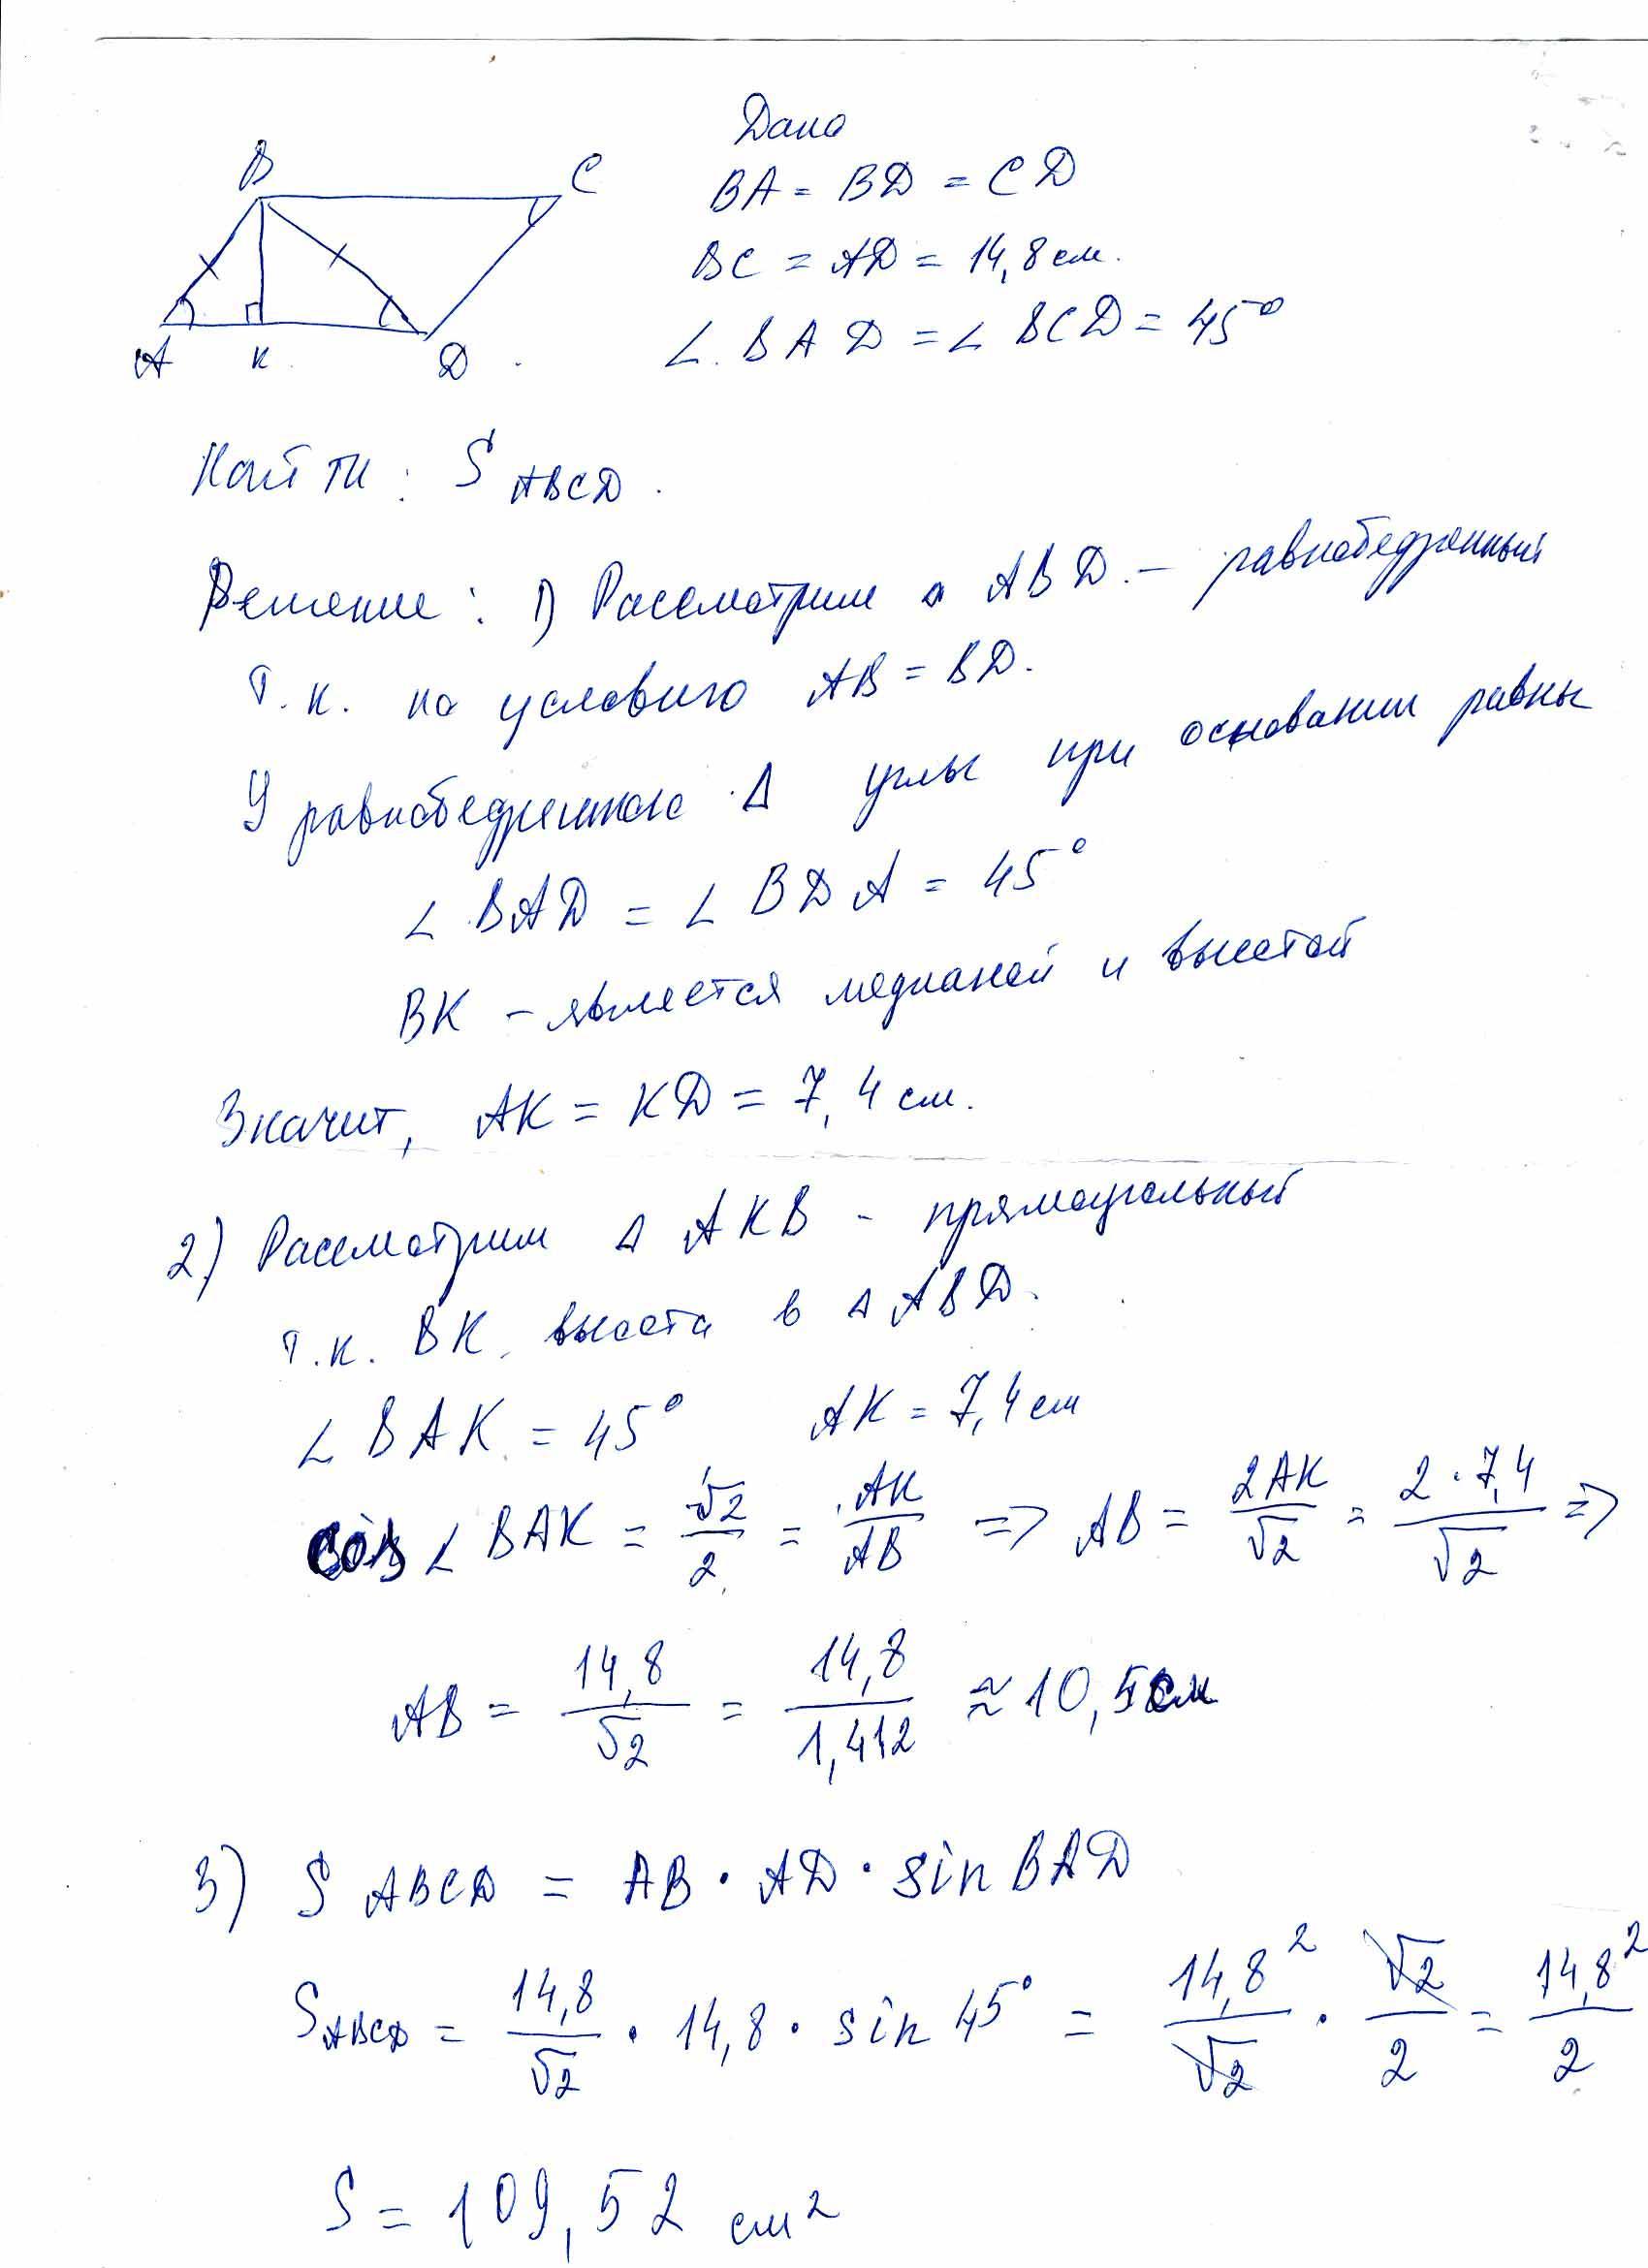 Дано
B C
BA = BD = CD
BC = AD = 14,8 см.
A K D
∠ BAD = ∠ BCD = 45°
Найти: S ABCD.
Решение: 1) Рассмотрим △ ABD. – равнобедренный
т.к. по условию AB = BD.
У равнобедренного △ углы при основании равны
∠ BAD = ∠ BDA = 45°
BK – является медианой и высотой
Значит, AK = KD = 7,4 см.
2) Рассмотрим △ AKB - прямоугольный
т.к. BK высота в △ ABD.
∠ BAK = 45° AK = 7,4 см
cos ∠ BAK = √2/2 = AK/AB => AB = 2AK/√2 = 2·7,4/√2 =>
AB = 14,8/√2 = 14,8/1,412 ≈ 10,5 см
3) S ABCD = AB · AD · sin BAD
S ABCD = 14,8/√2 · 14,8 · sin 45° = 14,8²/√2 · √2/2 = 14,8²/2
S = 109,52 см²